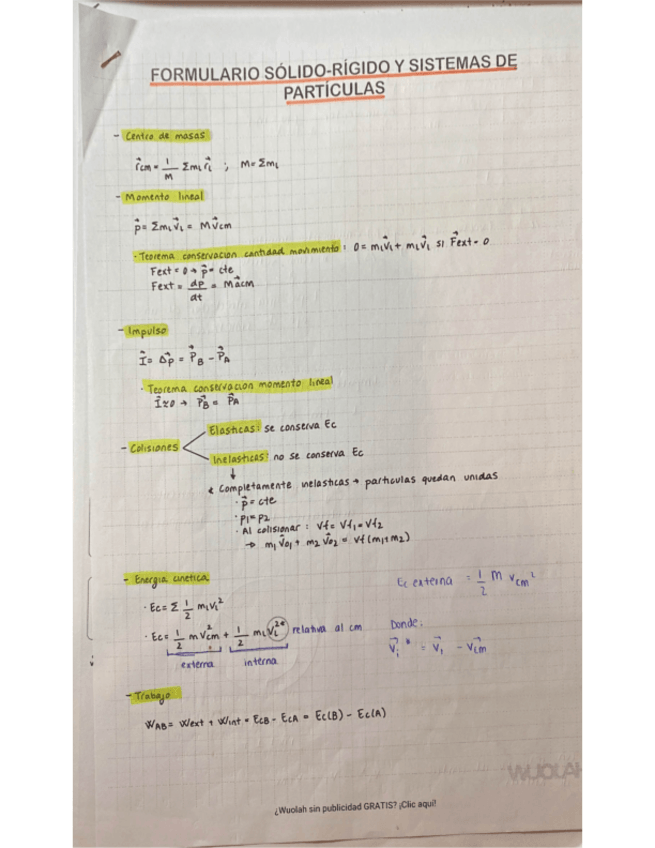 FORMULARIO SÓLIDO-RÍGIDO Y SISTEMAS DE
PARTÍCULAS
- Centro de masas
r⃗cm = 1/M Σmi r⃗i ; M = Σmi
- Momento lineal
p⃗ = Σmi v⃗i = M v⃗cm
· Teorema conservacion cantidad movimiento : 0 = mi v⃗i + mi v⃗i si F⃗ext = 0
Fext = 0 → p⃗ = cte
Fext = dp/dt = M a⃗cm
- Impulso
I⃗ = Δp⃗ = P⃗B - P⃗A
· Teorema conservacion momento lineal
I⃗ ≈ 0 → P⃗B = P⃗A
Elasticas: se conserva Ec
- Colisiones
Inelasticas: no se conserva Ec
↓
* Completamente inelasticas → particulas quedan unidas
· p⃗ = cte
· p1 = p2
· Al colisionar : Vf = Vf1 = Vf2
→ m1 v⃗01 + m2 v⃗02 = vf (m1 + m2)
- Energia cinetica
Ec externa = 1/2 M vcm²
· Ec = Σ 1/2 mi vi²
· Ec = 1/2 m vcm² + 1/2 mi vi²* relativa al cm
Donde:
externa interna
v⃗i* = v⃗i - v⃗cm
- Trabajo
WAB = Wext + Wint = EcB - EcA = Ec(B) - Ec(A)
WUOLAH
¿Wuolah sin publicidad GRATIS? ¡Clic aquí!